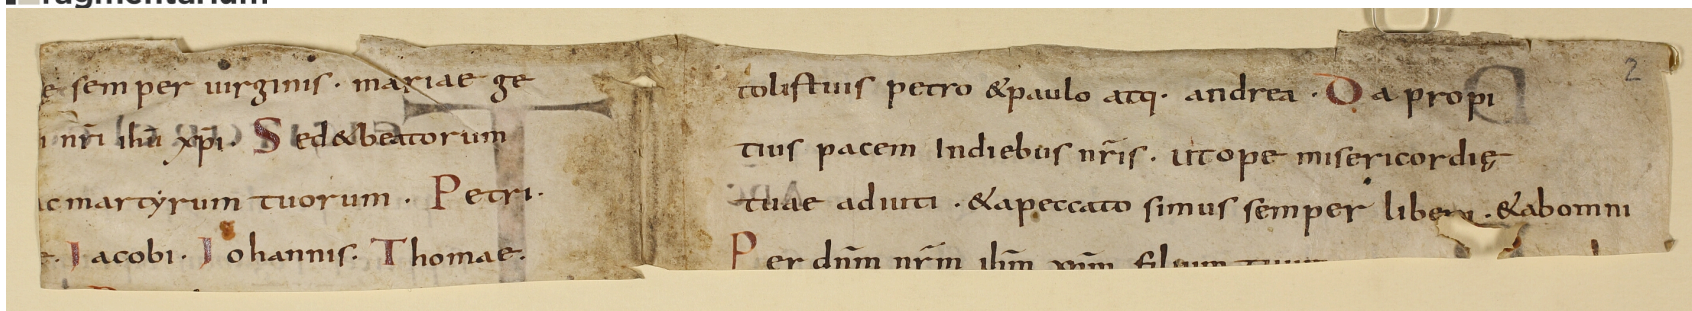 e semper uirginis. mariae ge
i nr̄i ihū xp̄i. Sed & beatorum
ac martyrum tuorum. Petri.
Iacobi. Iohannis. Thomae.
2
tolis tuis petro & paulo atq. andrea. Da propi
tius pacem In diebus nr̄is. ut ope misericordię
tuae adiuti. & a peccato simus semper liberi. & ab omni
Per dn̄m nr̄m ih̄m xp̄m filium tuum